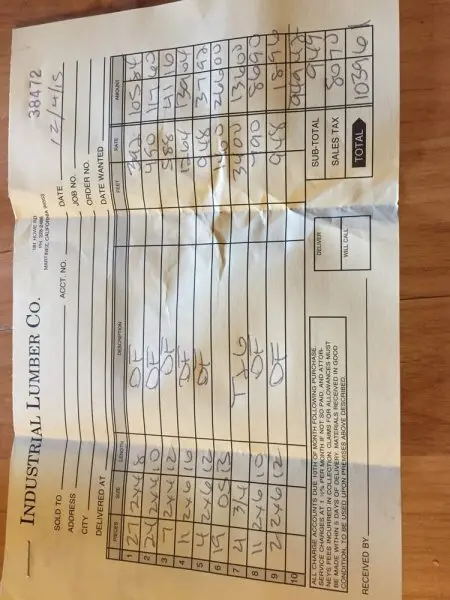 INDUSTRIAL LUMBER CO.
MARTINEZ, CALIFORNIA
38472
SOLD TO
DATE 12/4/15
ADDRESS
ACCT. NO.
JOB NO.
CITY
ORDER NO.
DELIVERED AT
DATE WANTED
PIECES SIZE LENGTH DESCRIPTION FEET RATE AMOUNT
1 27 2x4 8 DF 392 10584
2 24 2x4 10 DF 490 11760
3 7 2x4 12 DF 588 4116
4 11 2x6 16 DF 1264 13904
5 4 2x6 12 DF 948 3792
6 19 OSB 1400 26600
7 4 3/4 T&G 3400 13600
8 11 2x6 10 DF 790 8690
9 2 2x6 12 DF 948 1896
10
ALL CHARGE ACCOUNTS DUE 10TH OF MONTH FOLLOWING PURCHASE.
SERVICE CHARGES AT 1 ½% PER MONTH IF NOT SO PAID, AND ATTOR-
NEYS FEES INCURRED IN COLLECTION. CLAIMS FOR ALLOWANCES MUST
BE MADE WITHIN 5 DAYS OF DELIVERY. MATERIALS RECEIVED IN GOOD
CONDITION, TO BE USED UPON PREMISES ABOVE DESCRIBED.
DELIVER
WILL CALL
SUB-TOTAL 94942
949
SALES TAX 8070
TOTAL 103961
RECEIVED BY